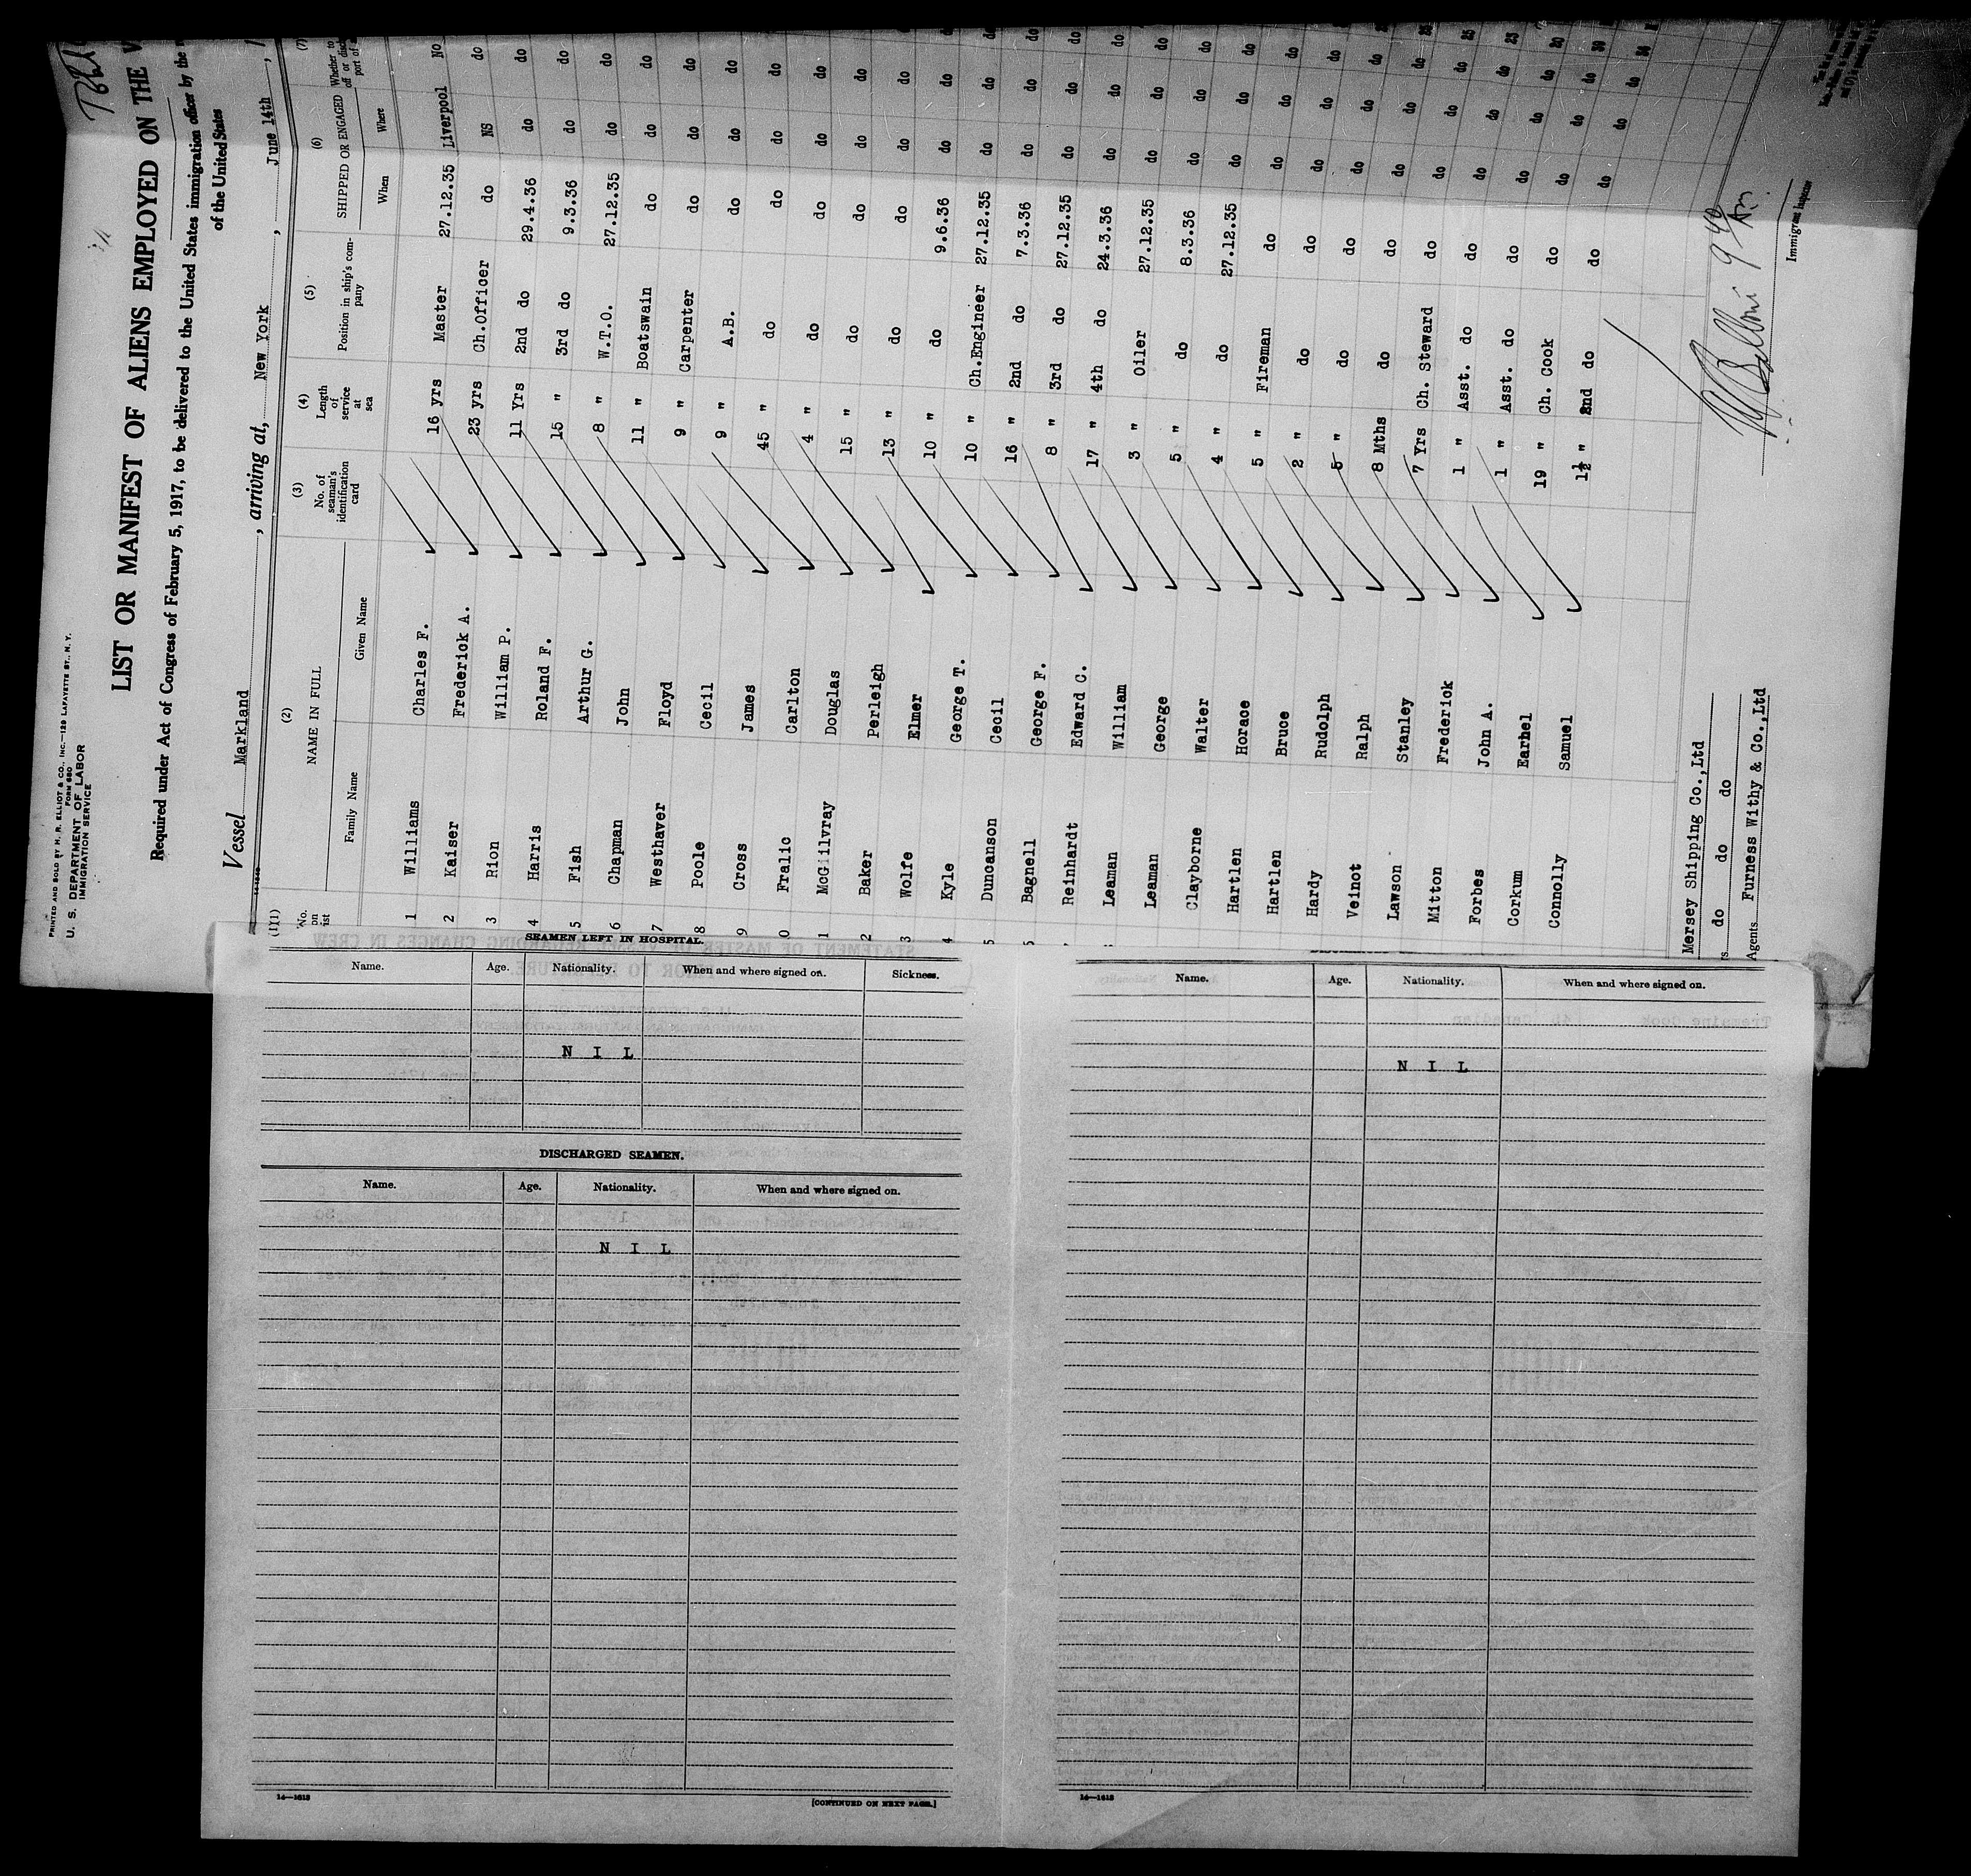 PRINTED AND SOLD BY H. R. ELLIOT & CO., INC.—129 LAFAYETTE ST., N. Y.
FORM 680
U. S. DEPARTMENT OF LABOR
IMMIGRATION SERVICE
LIST OR MANIFEST OF ALIENS EMPLOYED ON THE V
Required under Act of Congress of February 5, 1917, to be delivered to the United States immigration officer by the
of the United States
Vessel Markland, arriving at, New York, June 14th,
(1) (2) (3) (4) (5) (6) (7)
No. on list NAME IN FULL No. of seaman's identification card Length of service at sea Position in ship's company SHIPPED OR ENGAGED Whether to
Family Name Given Name When Where
1 Williams Charles F. 16 yrs Master 27.12.35 Liverpool No
2 Kaiser Frederick A. 23 yrs Ch.Officer do NS do
3 Rion William P. 11 Yrs 2nd do 29.4.36 do do
4 Harris Roland F. 15 " 3rd do 9.3.36 do do
5 Fish Arthur G. 8 " W.T.O. 27.12.35 do do
6 Chapman John 11 " Boatswain do do do
7 Westhaver Floyd 9 " Carpenter do do do
8 Poole Cecil 9 " A.B. do do do
9 Cross James 45 " do do do do
0 Fralic Carlton 4 " do do do do
1 McGillvray Douglas 15 " do do do do
2 Baker Perleigh 13 " do do do do
3 Wolfe Elmer 10 " do 9.6.36 do do
4 Kyle George T. 10 " Ch.Engineer 27.12.35 do do
5 Duncanson Cecil 16 " 2nd do 7.3.36 do do
Bagnell George F. 8 " 3rd do 27.12.35 do do
Reinhardt Edward C. 17 " 4th do 24.3.36 do do
Leaman William 3 " Oiler 27.12.35 do do
Leaman George 5 " do 8.3.36 do do
Clayborne Walter 4 " do 27.12.35 do do
Hartlen Horace 5 " Fireman do do do
Hartlen Bruce 2 " do do do do
Hardy Rudolph 5 " do do do do
Veinot Ralph 8 Mths do do do do
Lawson Stanley 7 Yrs Ch. Steward do do do
Mitton Frederick 1 " Asst. do do do do
Forbes John A. 1 " Asst. do do do do
Corkum Earhel 19 " Ch. Cook do do do
Connolly Samuel 1½ " 2nd do do do do
Mersey Shipping Co.,Ltd
do do do
Agents Furness Withy & Co.,Ltd
Immigrant Inspector
SEAMEN LEFT IN HOSPITAL.
Name. Age. Nationality. When and where signed on. Sickness.
N I L
DISCHARGED SEAMEN.
Name. Age. Nationality. When and where signed on.
N I L
14—1613
[CONTINUED ON NEXT PAGE.]
Name. Age. Nationality. When and where signed on.
N I L
14—1613